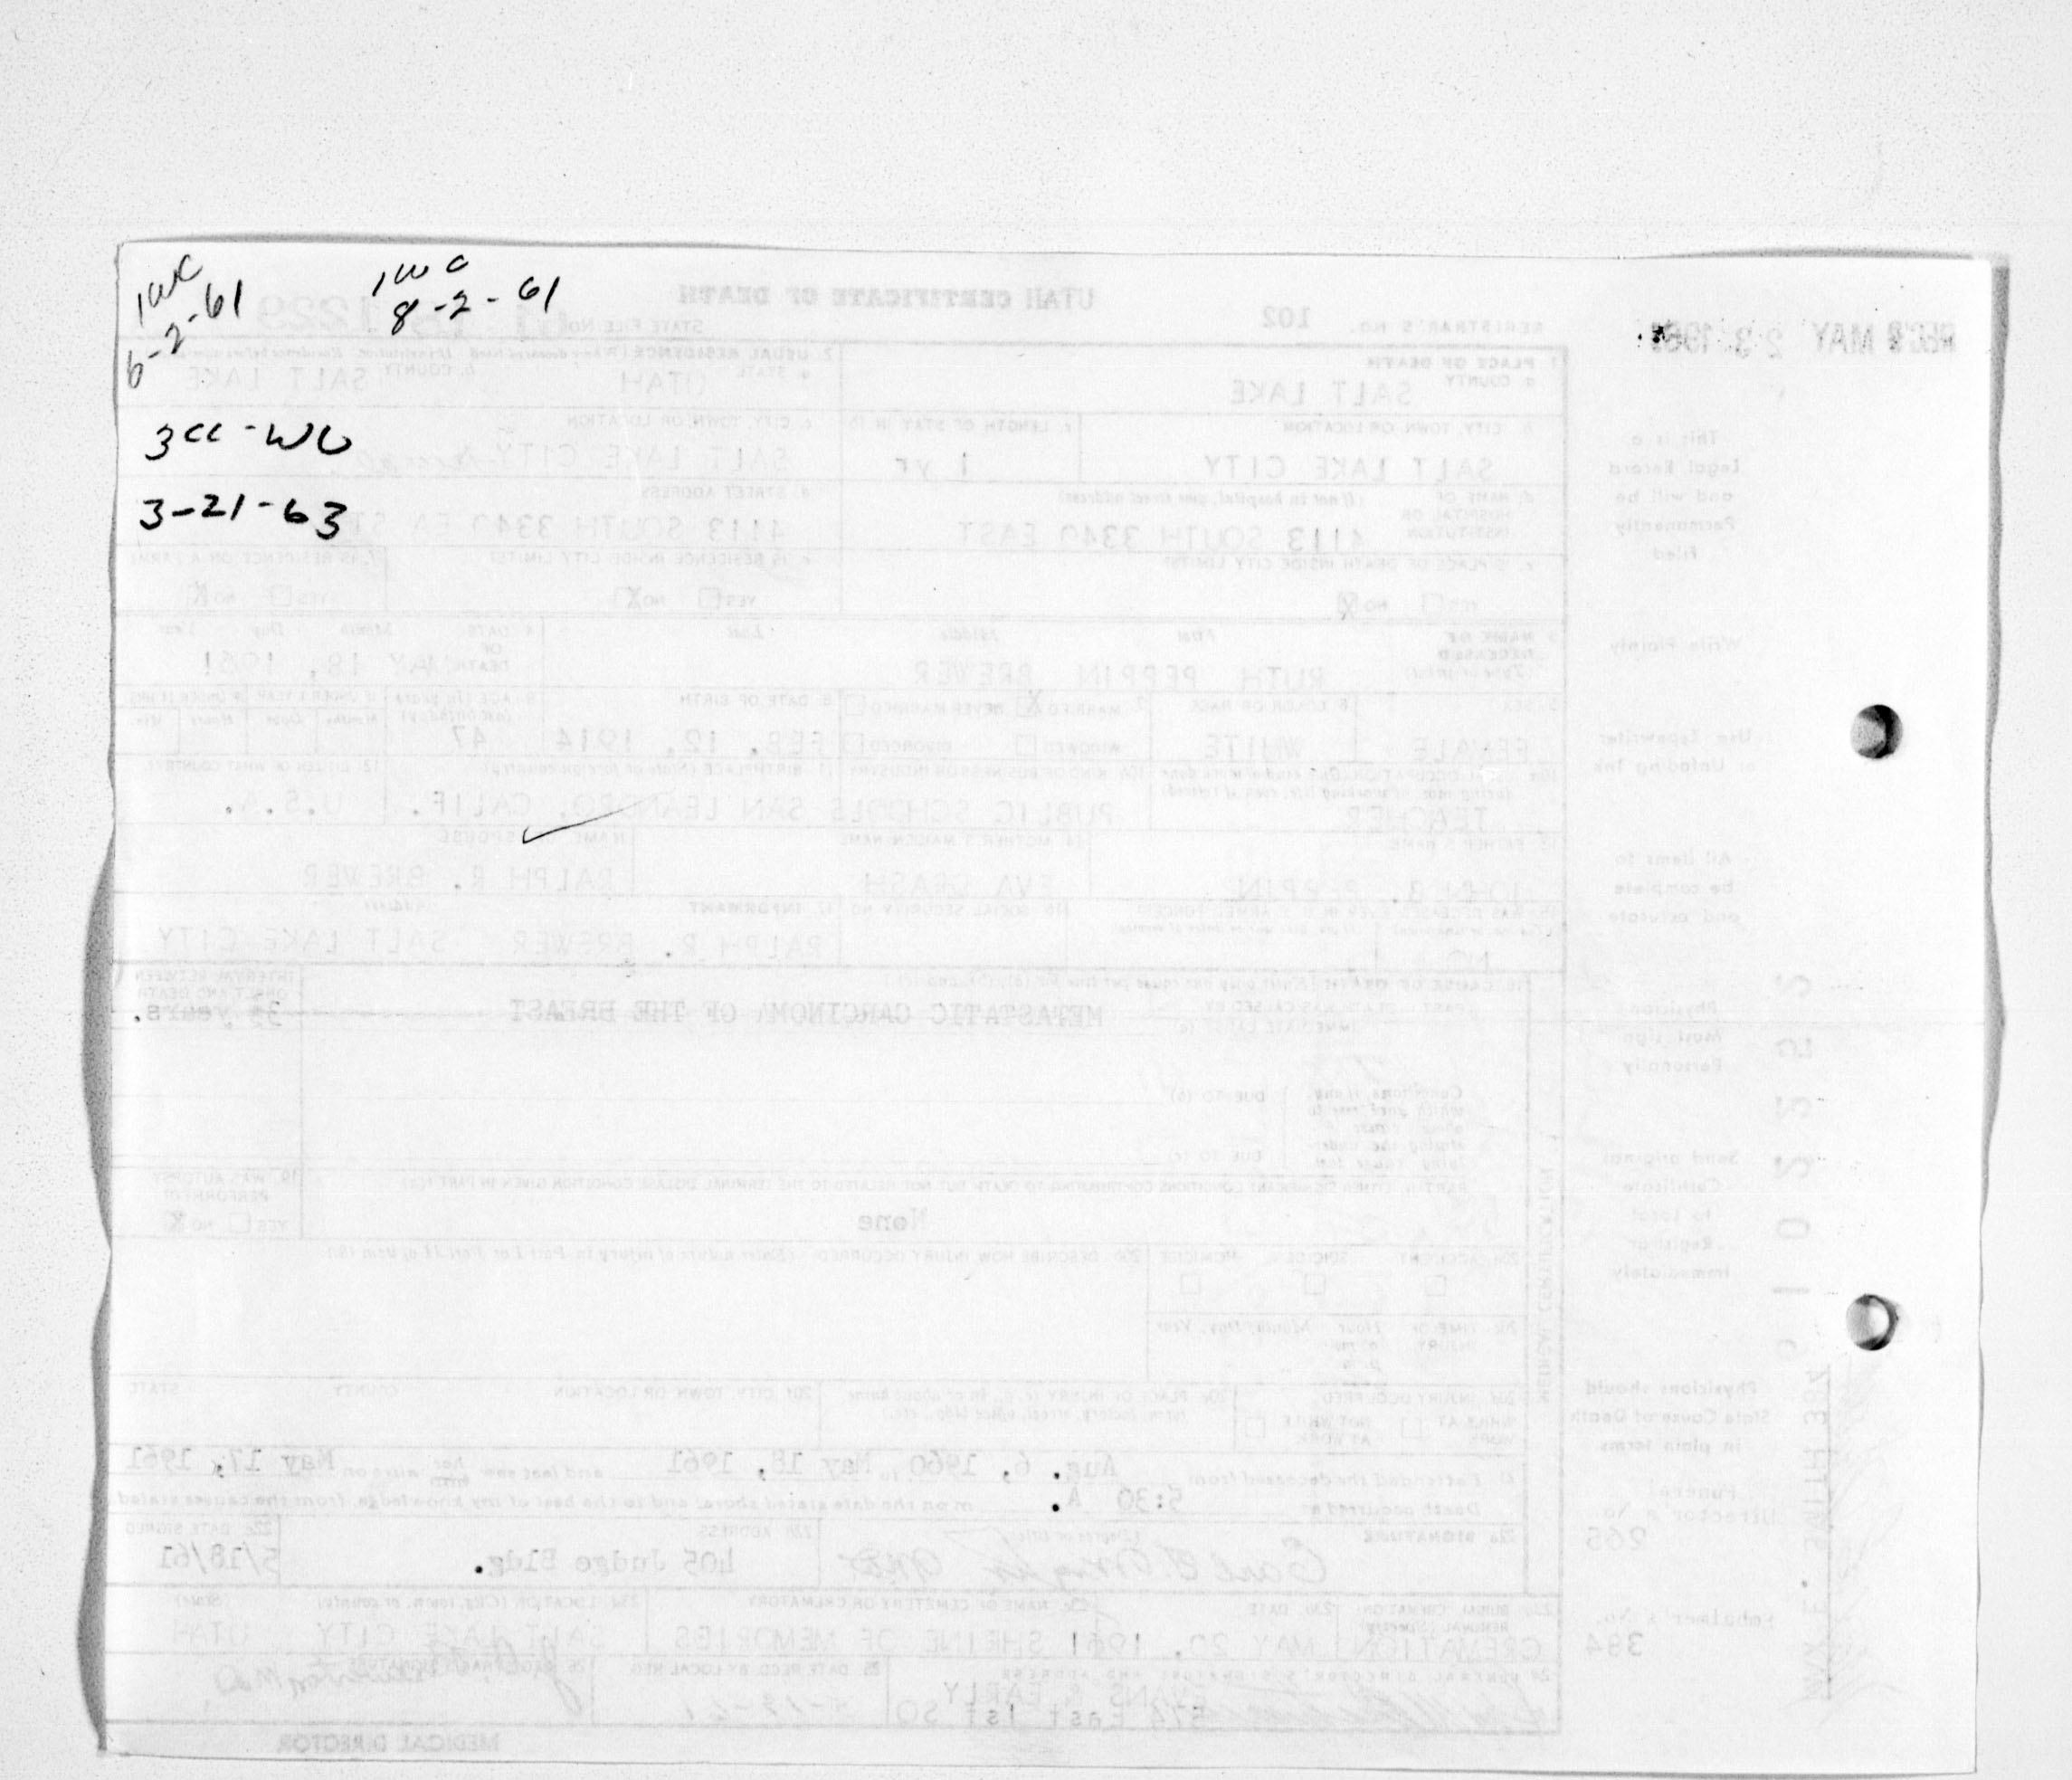 1wc
6-2-61
1wc
8-2-61
3cc-WC
3-21-63
UTAH CERTIFICATE OF DEATH
REGISTRAR'S NO. 102
STATE FILE NO. 61 18 1229
REC'D MAY 23 1961
1. PLACE OF DEATH
a. COUNTY SALT LAKE
2. USUAL RESIDENCE
a. STATE UTAH
b. COUNTY SALT LAKE
b. CITY, TOWN OR LOCATION SALT LAKE CITY
c. LENGTH OF STAY IN 1b 1 yr
c. CITY, TOWN OR LOCATION SALT LAKE CITY
d. NAME OF HOSPITAL OR INSTITUTION (If not in hospital, give street address) 4113 SOUTH 3340 EAST
d. STREET ADDRESS 4113 SOUTH 3340 EA ST
e. IS PLACE OF DEATH INSIDE CITY LIMITS?
YES NO X
e. IS RESIDENCE INSIDE CITY LIMITS?
YES NO X
f. IS RESIDENCE ON A FARM?
YES NO X
3. NAME OF DECEASED (Type or print) First Middle Last
RUTH PEPPIN BREWER
4. DATE OF DEATH Month Day Year
MAY 18, 1961
5. SEX FEMALE
6. COLOR OR RACE WHITE
7. MARRIED X NEVER MARRIED
WIDOWED DIVORCED
8. DATE OF BIRTH FEB. 12, 1914
9. AGE (In years last birthday) 47
IF UNDER 1 YEAR Months Days
IF UNDER 24 HRS Hours Min.
10a. USUAL OCCUPATION TEACHER
10b. KIND OF BUSINESS OR INDUSTRY PUBLIC SCHOOLS
11. BIRTHPLACE (State or foreign country) SAN LEANDRO, CALIF.
12. CITIZEN OF WHAT COUNTRY? U.S.A.
13. FATHER'S NAME PEPPIN
14. MOTHER'S MAIDEN NAME EVA
NAME OF SPOUSE RALPH R. BREWER
15. WAS DECEASED EVER IN U.S. ARMED FORCES? NO
16. SOCIAL SECURITY NO.
17. INFORMANT Address
RALPH R. BREWER SALT LAKE CITY
18. CAUSE OF DEATH
PART I. DEATH WAS CAUSED BY
IMMEDIATE CAUSE (a) METASTATIC CARCINOMA OF THE BREAST
INTERVAL BETWEEN ONSET AND DEATH
years.
DUE TO (b)
DUE TO (c)
PART II. OTHER SIGNIFICANT CONDITIONS CONTRIBUTING TO DEATH BUT NOT RELATED TO THE TERMINAL DISEASE CONDITION GIVEN IN PART I (a)
None
19. WAS AUTOPSY PERFORMED?
YES NO X
20a. ACCIDENT SUICIDE HOMICIDE
20b. DESCRIBE HOW INJURY OCCURRED. (Enter nature of injury in Part I or Part II of item 18.)
20c. TIME OF INJURY Hour Month, Day, Year
a.m.
p.m.
20d. INJURY OCCURRED
WHILE AT WORK NOT WHILE AT WORK
20e. PLACE OF INJURY (e.g., in or about home, farm, factory, street, office bldg., etc.)
20f. CITY, TOWN, OR LOCATION COUNTY STATE
21. I attended the deceased from Aug. 6, 1960 to May 18, 1961 and last saw her alive on May 17, 1961
Death occurred at 5:30 A. m on the date stated above; and to the best of my knowledge, from the causes stated.
22a. SIGNATURE (Degree or title)
22b. ADDRESS 405 Judge Bldg.
22c. DATE SIGNED 5/18/61
23a. BURIAL, CREMATION, REMOVAL (Specify) CREMATION
23b. DATE MAY 20, 1961
23c. NAME OF CEMETERY OR CREMATORY SHRINE OF MEMORIES
23d. LOCATION (City, town, or county) (State) SALT LAKE CITY UTAH
24. FUNERAL DIRECTOR'S SIGNATURE AND ADDRESS
EVANS & EARLY
574 East 1st SO
25. DATE RECD. BY LOCAL REG. 5-19-61
26. REGISTRAR'S SIGNATURE
MEDICAL DIRECTOR
MEDICAL CERTIFICATION
This is a
Legal Record
and will be
Permanently
Filed
Write Plainly
Use Typewriter
or Unfading Ink
All items to
be complete
and accurate
Physicians
Must sign
Personally
Send original
Certificate
to Local
Registrar
Immediately
Physicians should
State Cause of Death
in plain terms
Funeral
Director's No.
265
Embalmer's No.
394